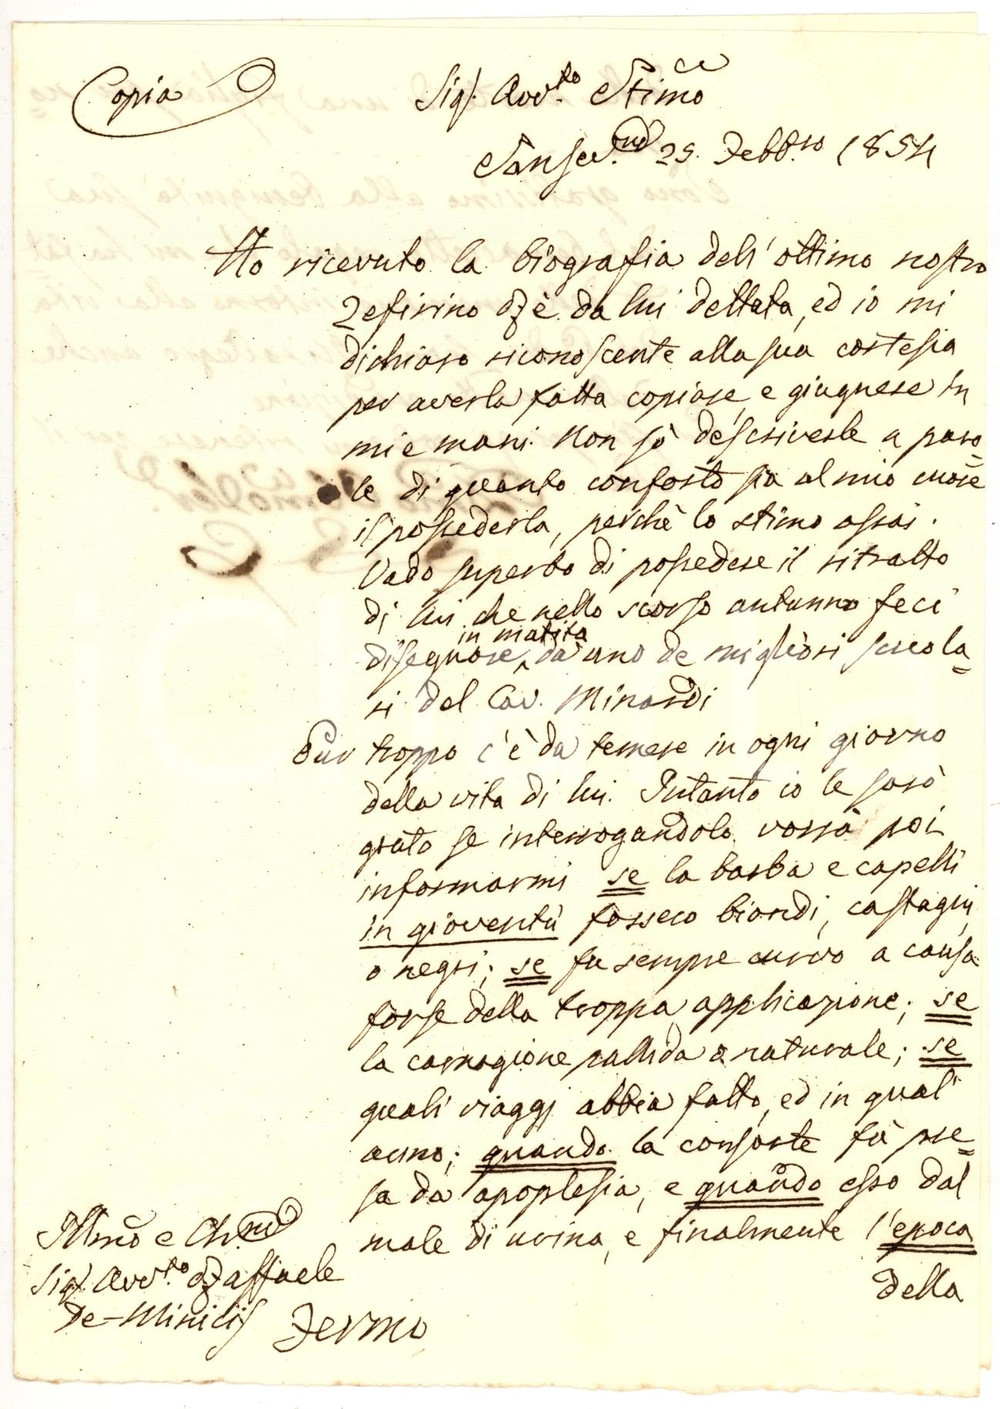 Copia
Sig.r Avv.to Stimo
Sanseu.no 25. Febb.ro 1854
Ho ricevuto la biografia dell'ottimo nostro
Zefirino Rè da lui dettata, ed io mi
dichiaro riconoscente alla sua cortesia
per averla fatta copiare, e giugnere in
mie mani. Non sò descriverle a paro=
le di quanto conforto sia al mio cuore
il possederla, perchè lo stimo assai.
Vado superbo di possedere il ritratto
di lui, che nello scorso autunno feci
in matita
disegnare, da uno de migliori scola=
ri del Cav. Minardi
Pur troppo c'è da temere in ogni giorno
della vita di lui. Intanto io le sarò
grato se interrogandolo, vorrà poi
informarmi se la barba e capelli
in gioventù fossero biondi, castagni,
o negri; se fu sempre curvo a causa
forse della troppa applicazione; se
la carnagione pallida o naturale; se
quali viaggi abbia fatto, ed in qual'
anno; quando la consorte fù pre=
sa da apoplesia, e quando esso dal
male di urina, e finalmente l'epoca
della
Illmo e Ch.mo
Sig.r Avv.to Raffaele
De-Minicis
Fermo